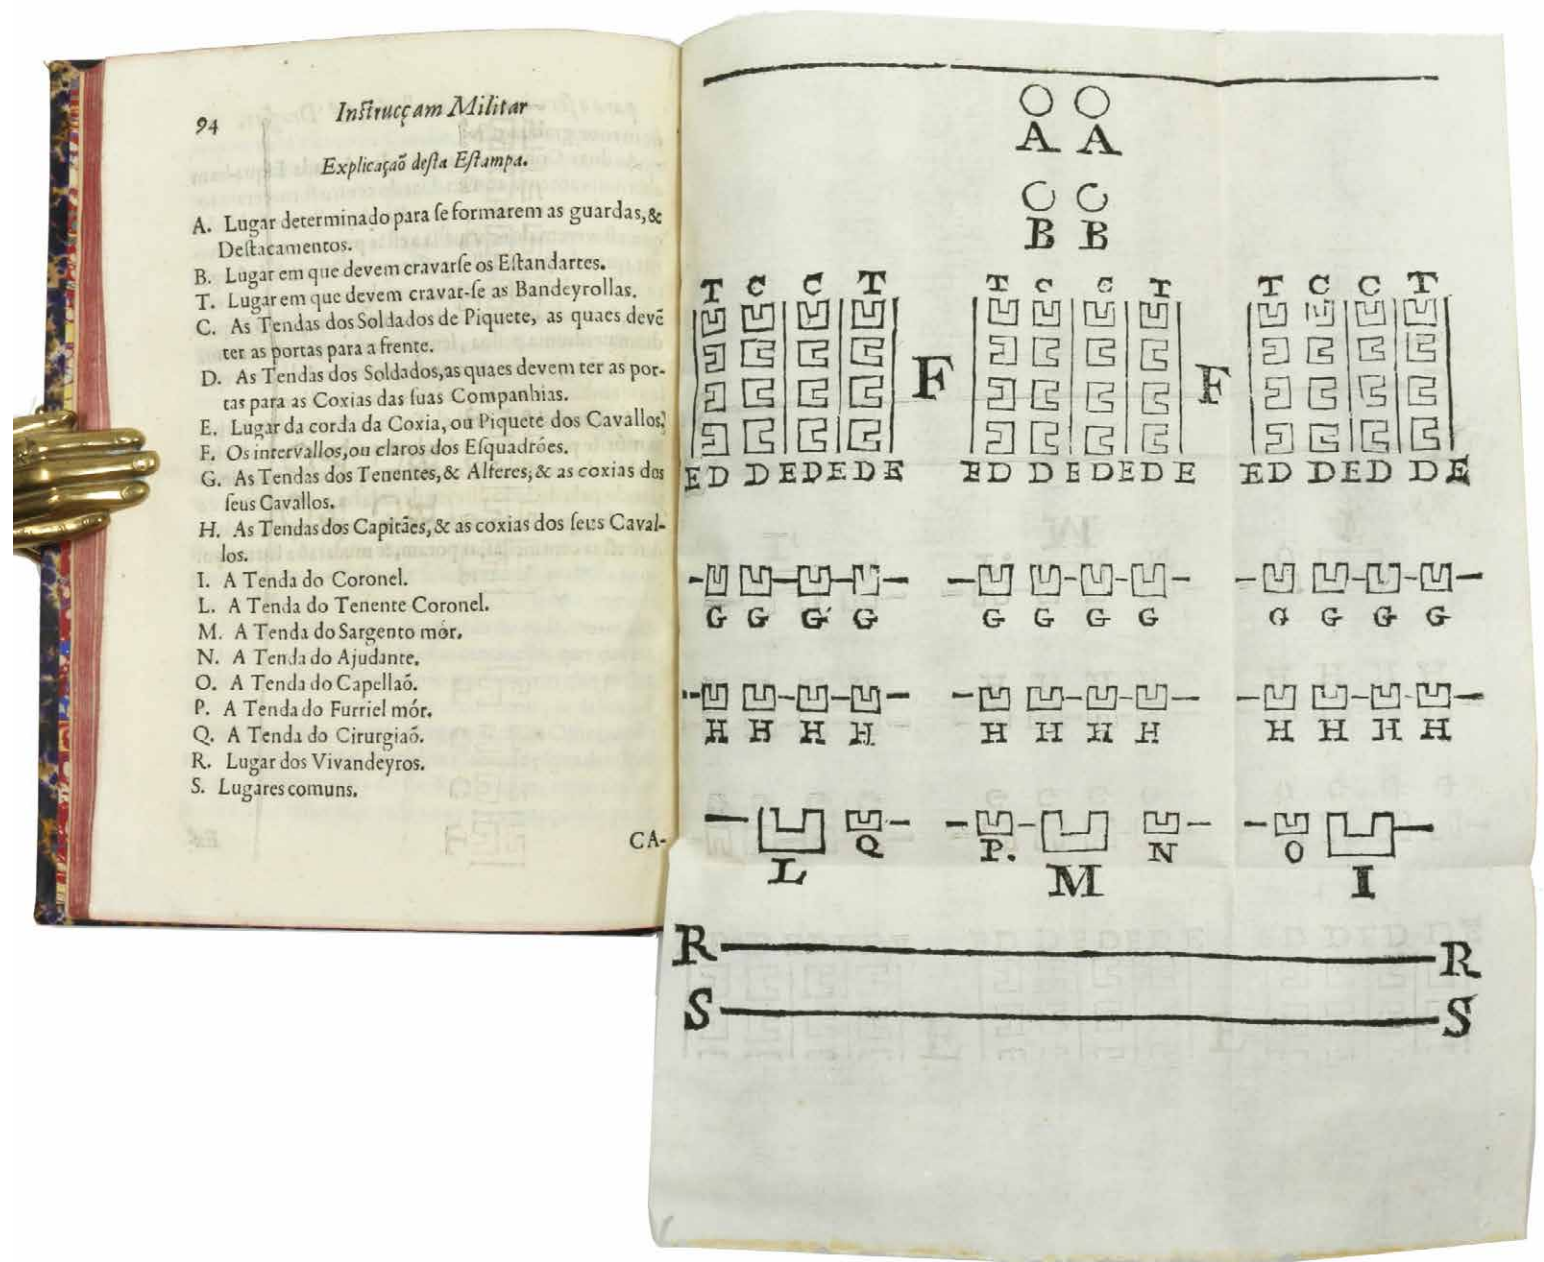 94
Instrucçam Militar
Explicaçaõ desta Estampa.
A. Lugar determinado para se formarem as guardas, &
Destacamentos.
B. Lugar em que devem cravarse os Estandartes.
T. Lugar em que devem cravar-se as Bandeyrollas.
C. As Tendas dos Soldados de Piquete, as quaes devẽ
ter as portas para a frente.
D. As Tendas dos Soldados, as quaes devem ter as por-
tas para as Coxias das suas Companhias.
E. Lugar da corda da Coxia, ou Piquete dos Cavallos;
F. Os intervallos, ou claros dos Esquadrões.
G. As Tendas dos Tenentes, & Alferes; & as coxias dos
seus Cavallos.
H. As Tendas dos Capitães, & as coxias dos seus Caval-
los.
I. A Tenda do Coronel.
L. A Tenda do Tenente Coronel.
M. A Tenda do Sargento mór.
N. A Tenda do Ajudante.
O. A Tenda do Capellaõ.
P. A Tenda do Furriel mór.
Q. A Tenda do Cirurgiaõ.
R. Lugar dos Vivandeyros.
S. Lugares comuns.
CA-
A A
B B
T C C T T C C T T C C T
F F
E D D E D E D E E D D E D E D E E D D E D D E
G G G G G G G G G G G G
H H H H H H H H H H H H
L Q P. M N O I
R R
S S